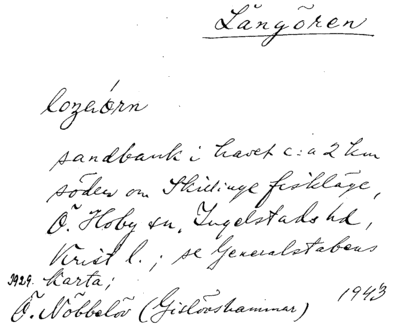 Långören
sandbank i havet c:a 2 km
söder om Skillinge fiskläge,
Ö. Hoby sn, Ingelstads hd,
Krist l.; se Generalstabens
karta;
Ö. Nöbbelöv (Gislövshammar) 1943